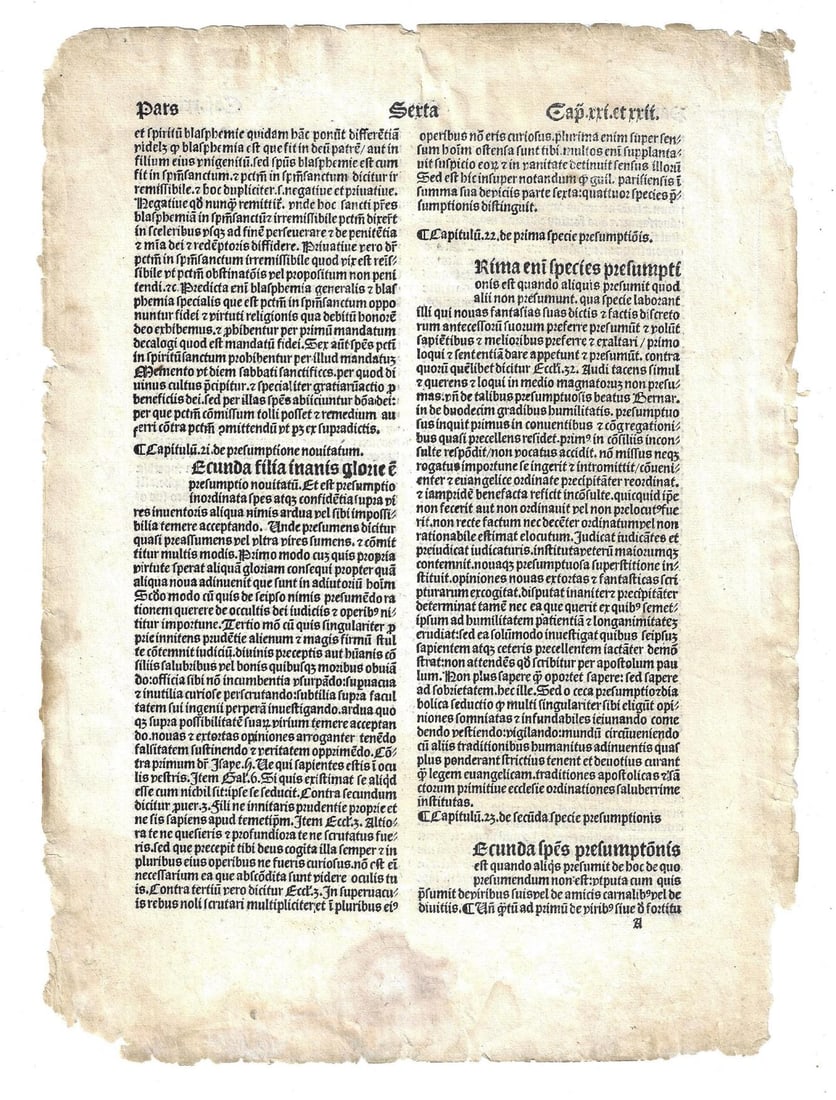 Pars Sexta Cap̄.xxi.et xxii.
et spiritū blasphemie quidam hāc ponūt differētiā
videlꝫ ꝙ blasphemia est que fit in deū patrē/ aut in
filium eius vnigenitū.sed spūs blasphemie est cum
fit in spm̄sanctum.⁊ pctm̄ in spm̄sanctum dicitur ir
remissibile.⁊ hoc dupliciter.s.negatiue et priuatiue.
Negatiue qd̄ nunꝙ̄ remittit̄. vnde hoc sancti pr̄es
blasphemiā in spm̄sanctū ⁊ irremissibile pctm̄ dixer̄t
in sceleribus vsqꝫ ad finē perseuerare ⁊ de penitētia
⁊ mīa dei ⁊ redēptoris diffidere. Priuatiue vero dr̄
pctm̄ in spm̄sanctum irremissibile quod vix est remis⸗
sibile vt pctm̄ obstinatōis vel propositum non peni
tendi.⁊c. Predicta enī blasphemia generalis ⁊ blas
phemia specialis que est pctm̄ in spm̄sanctum oppo
nuntur fidei ⁊ virtuti religionis qua debitū honorē
deo exhibemus.⁊ ꝓhibentur per primū mandatum
decalogi quod est mandatū fidei. Sex aūt spēs pctī
in spiritūsanctum prohibentur per illud mandatuꝫ
Memento vt diem sabbati sanctifices.per quod di
uinus cultus p̄cipitur.⁊ specialiter gratiarūactio ꝓ
beneficiis dei.sed per illas spēs abiiciuntur dōa dei:
per que pctm̄ cōmissum tolli posset ⁊ remedium au
ferri cōtra pctm̄ ꝯmittendū vt pꝫ ex supradictis.
¶Capitulū.21.de presumptione nouitatum.
Ecunda filia inanis glorie ē
presumptio nouitatū. Et est presumptio
inordinata spes atqꝫ confidētia supra vi
res inuentoris aliqua nimis ardua vel sibi impossi⸗
bilia temere acceptando. Unde presumens dicitur
quasi preassumens vel vltra vires sumens. ⁊ cōmit
titur multis modis. Primo modo cuꝫ quis propria
virtute sperat aliquā gloriam consequi propter quā
aliqua noua adinuenit que sunt in adiutoriū hoīm
Scd̄o modo cū quis de seipso nimis presumēdo ra
tionem querere de occultis dei iudiciis ⁊ operibꝰ ni⸗
titur importune. Tertio mō cū quis singulariter ꝓ
prie innitens prudētie alienum ⁊ magis firmū stul
te cōtemnit iudiciū.diuinis preceptis aut hūanis cō
siliis salubribus vel bonis quibusqꝫ moribus obuiā
do:officia sibi nō incumbentia vsurpādo:supuacua
⁊ inutilia curiose perscrutando:subtilia supra facul
tatem sui ingenii perperā inuestigando.ardua quo
qꝫ supra possibilitatē suaꝝ virium temere acceptan
do.nouas ⁊ extortas opiniones arroganter tenēdo
falsitatem sustinendo ⁊ veritatem opprimēdo. Cō⸗
tra primum dr̄ Isaye.5. Ue qui sapientes estis ī ocu
lis vestris. Item Gal̄.6. Si quis existimat se aliqd
esse cum nichil sit ipse se seducit. Contra secundum
dicitur ꝓuer.3. Fili ne innitaris prudentie proprie et
ne sis sapiens apud temetip̄m. Item Eccl̄.3. Altio⸗
ra te ne quesieris ⁊ profundiora te ne scrutatus fue⸗
ris.sed que precepit tibi deus cogita illa semper ⁊ in
pluribus eius operibus ne fueris curiosus.nō est eī
necessarium ea que abscōdita sunt videre oculis tu
is. Contra tertiū vero dicitur Eccl̄.3. In superuacu⸗
is rebus noli scrutari multipliciter;et ī pluribus eiꝰ
operibus nō eris curiosus.plurima enim super sen⸗
sum hoīm ostensa sunt tibi.multos enī supplanta⸗
uit suspicio eoꝝ ⁊ in vanitate detinuit sensus illorū
Sed est hic insuper notandum ꝙ guil. parisiensis ī
summa sua de viciis parte sexta:quattuor species p̄⸗
sumptionis distinguit.
¶Capitulū.22.de prima specie presumptiōis.
Rima enī species presumpti
onis est quando aliquis presumit quod
alii non presumunt. qua specie laborant
illi qui nouas fantasias suas dictis ⁊ factis discreto
rum antecessorū suorum preferre presumūt ⁊ volūt
sapiētibus ⁊ melioribus preferre ⁊ exaltari / primo
loqui ⁊ sententiā dare appetunt ⁊ presumūt. contra
quorū quēlibet dicitur Eccl̄.32. Audi tacens simul
⁊ querens ⁊ loqui in medio magnatoruꝫ non presu⸗
mas.vn̄ de talibus presumptuosis beatus Bernar.
in de duodecim gradibus humilitatis. presumptuo
sus inquit primus in conuentibus ⁊ cōgregationi⸗
bus quasi precellens residet.primꝰ in cōsiliis incon⸗
sulte respōdit/non vocatus accidit. nō missus neqꝫ
rogatus importune se ingerit ⁊ intromittit/cōueni⸗
enter ⁊ euangelice ordinate precipitāter reordinat.
⁊ iampridē benefacta reficit incōsulte.quicquid ip̄e
non fecerit aut non ordinauit vel non prelocutꝰ fue
rit.non recte factum nec decēter ordinatum vel non
rationabile estimat elocutum. Iudicat iudicātes et
preiudicat iudicaturis.instituta veterū maiorumqꝫ
contemnit.nouaqꝫ presumptuosa superstitione in⸗
stituit.opiniones nouas extortas ⁊ fantasticas scri
pturarum excogitat.disputat inaniter ⁊ precipitāter
determinat tamē nec ea que querit ex quibꝰ semet⸗
ipsum ad humilitatem patientiā ⁊ longanimitateꝫ
erudiat:sed ea solūmodo inuestigat quibus seipsuꝫ
sapientem atqꝫ ceteris precellentem iactāter demō
strat:non attendēs qd̄ scribitur per apostolum pau
lum. Non plus sapere ꝙ̄ oportet sapere: sed sapere
ad sobrietatem.hec ille. Sed o ceca presumptio ⁊ dia
bolica seductio ꝙ multi singulariter sibi eligūt opi⸗
niones somniatas ⁊ infundabiles ieiunando come
dendo vestiendo:vigilando:mundū circūueniendo
cū aliis traditionibus humanitus adinuentis quas
plus ponderant strictius tenent et deuotius curant
ꝙ̄ legem euangelicam.traditiones apostolicas ⁊ sā
ctorum primitiue ecclesie ordinationes saluberrime
institutas.
¶Capitulū.23.de secūda specie presumptionis
Ecunda spēs presumptōnis
est quando aliqs presumit de hoc de quo
presumendum non est:vtputa cum quis
p̄sumit de viribus suis vel de amicis carnalibꝰ vel de
diuitiis.¶Un̄ q̄tū ad primū de viribꝰ siue d̄ fortitu
A